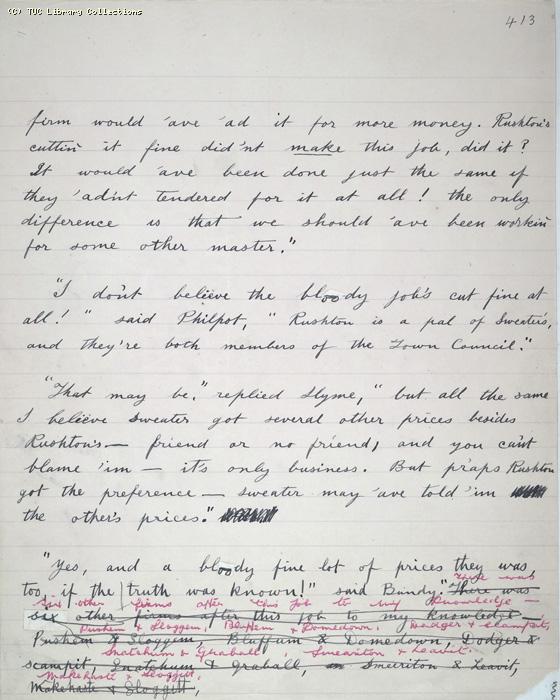 (C) TUC Library Collections
413
firm would 'ave 'ad it for more money. Rushton's
cuttin' it fine did'nt make this job, did it?
It would 'ave been done just the same if
they 'adn't tendered for it at all! the only
difference is that we should 'ave been workin'
for some other master."
"I don't believe the bloody job's cut fine at
all!" said Philpot, "Rushton is a pal of Sweater's,
and they're both members of the Town Council."
"That may be." replied Slyme, "but all the same
I believe Sweater got several other prices besides
Rushton's — friend or no friend, and you can't
blame 'im — it's only business. But p'raps Rushton
got the preference — Sweater may 'ave told 'im
the other's prices."
"Yes, and a bloody fine lot of prices they was,
There was
too, if the truth was known!" said Bundy. "There was
Six other firms after this job to my Knowledge
six other firms after this job to my knowledge,
Pushem & Sloggem, Bluffum & Domedown, Dodger & Scampit,
Pushem & Sloggem Bluffum & Domedown, Dodger &
Snatchum & Graball, Smeeriton & Leavit.
scampit, Snatchum & Graball, Smeeriton & Leavit,
Makehaste & Sloggitt,
Makehaste & Sloggitt,